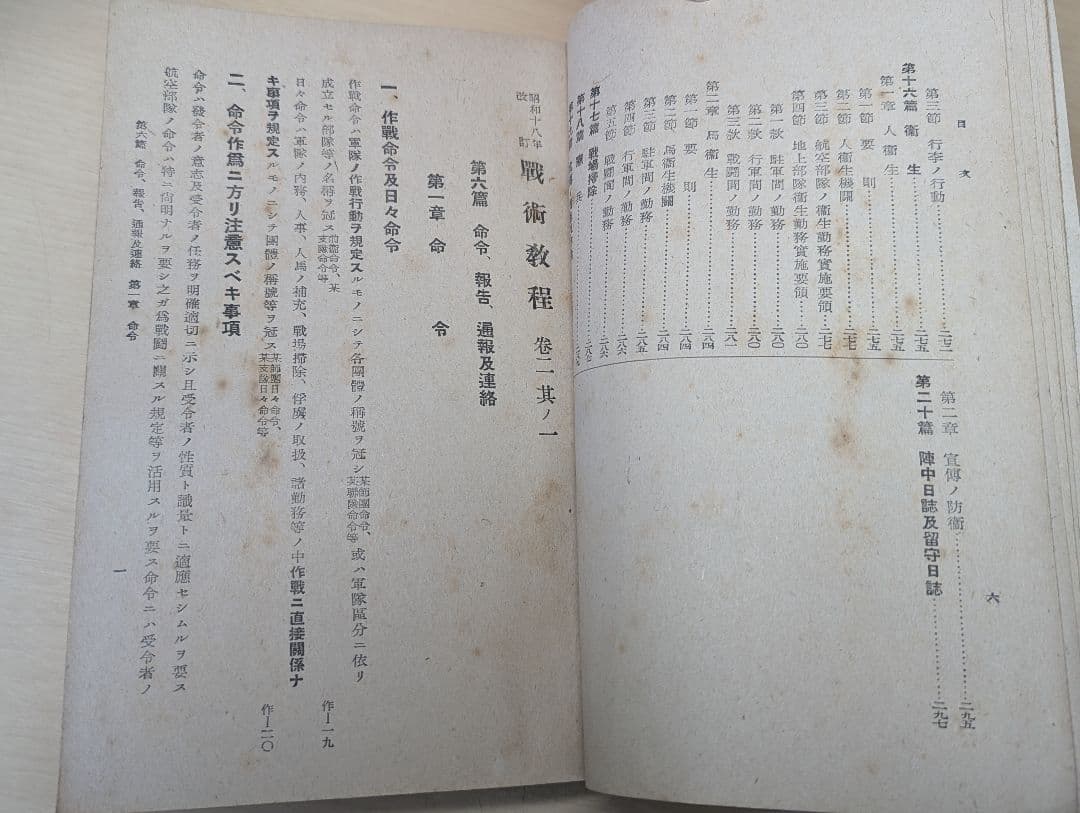 目次
第三節 行李ノ行動……二七二
第十六篇 衞生……二七五
第一章 人衞生……二七五
第一節 要則……二七五
第二節 人衞生機關……二七七
第三節 航空部隊ノ衞生勤務實施要領……二七七
第四節 地上部隊衞生勤務實施要領……二八〇
第一款 駐軍間ノ勤務……二八〇
第二款 行軍間ノ勤務……二八〇
第三款 戰鬪間ノ勤務……二八一
第二章 馬衞生……二八四
第一節 要則……二八四
第二節 馬衞生機關……二八四
第三節 駐軍間ノ勤務……二八五
第四節 行軍間ノ勤務……二八六
第五節 戰鬪間ノ勤務……二八六
第十七篇 戰場掃除……二八七
第十八篇 憲兵
第二章 宣傳ノ防衞……二九五
第二十篇 陣中日誌及留守日誌……二九七
六
昭和十八年改訂 戰術敎程 卷二其ノ一
第六篇 命令、報告、通報及連絡
第一章 命令
一、作戰命令及日々命令
作戰命令ハ軍隊ノ作戰行動ヲ規定スルモノニシテ各團體ノ稱號ヲ冠シ某師團命令、某聯隊命令等或ハ軍隊區分ニ依リ
成立セル部隊等ハ名稱ヲ冠ス前衞命令、某支隊命令等 作―一九
日々命令ハ軍隊ノ內務、人事、人馬ノ補充、戰場掃除、俘虜ノ取扱、諸勤務等ノ中作戰ニ直接關係ナ
キ事項ヲ規定スルモノニシテ團體ノ稱號等ヲ冠ス某師團日々命令、某支隊日々命令等 作―二〇
二、命令作爲ニ方リ注意スベキ事項
命令ハ發令者ノ意志及受令者ノ任務ヲ明確適切ニ示シ且受令者ノ性質ト識量トニ適應セシムルヲ要ス
航空部隊ノ命令ハ特ニ尙明ナルヲ要シ之ガ爲戰鬪ニ關スル規定等ヲ活用スルヲ要ス命令ニハ受令者ノ
第六篇 命令、報告、通報及連絡 第一章 命令
一